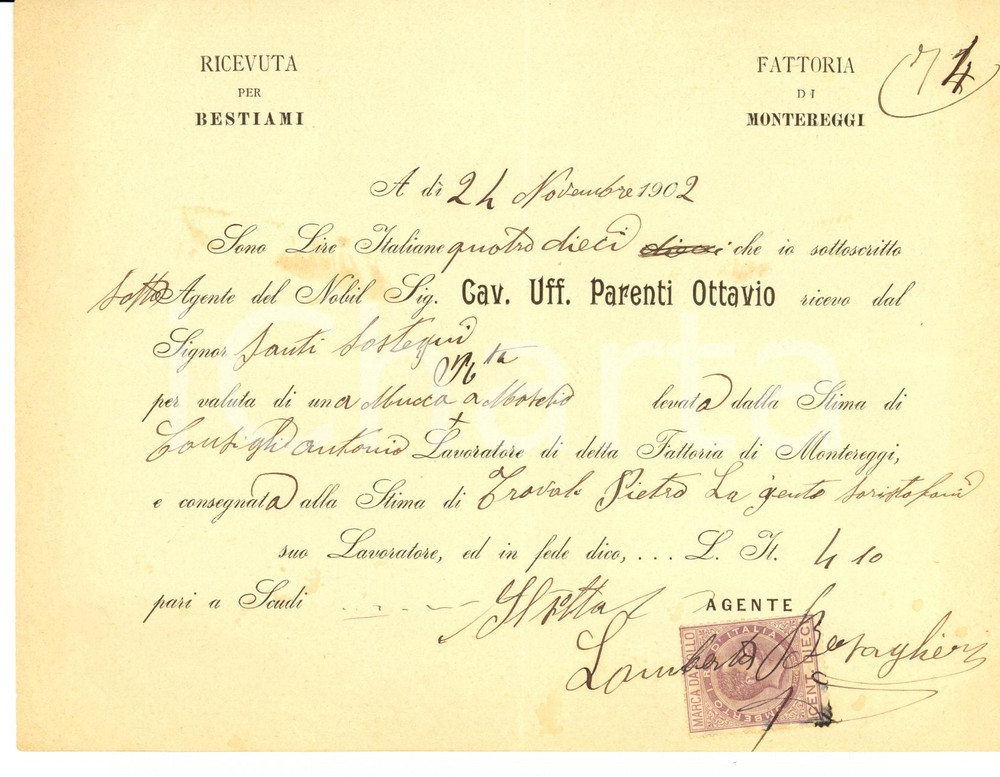 RICEVUTA
PER
BESTIAMI
FATTORIA
DI
MONTEREGGI
4
A dì 24 Novembre 1902
Sono Lire Italiane quatro dieci che io sottoscritto
Sotto Agente del Nobil Sig. Cav. Uff. Parenti Ottavio ricevo dal
Signor Santi Sostegni
per valuta di una Mucca a levata dalla Stima di
Antonio Lavoratore di detta Fattoria di Montereggi,
e consegnata alla Stima di Pietro La
suo Lavoratore, ed in fede dico, ... L. It. 4 10
pari a Scudi
AGENTE
Lamberto
MARCA DA BOLLO
UMBERTO I RE D'ITALIA
CENT. DIECI